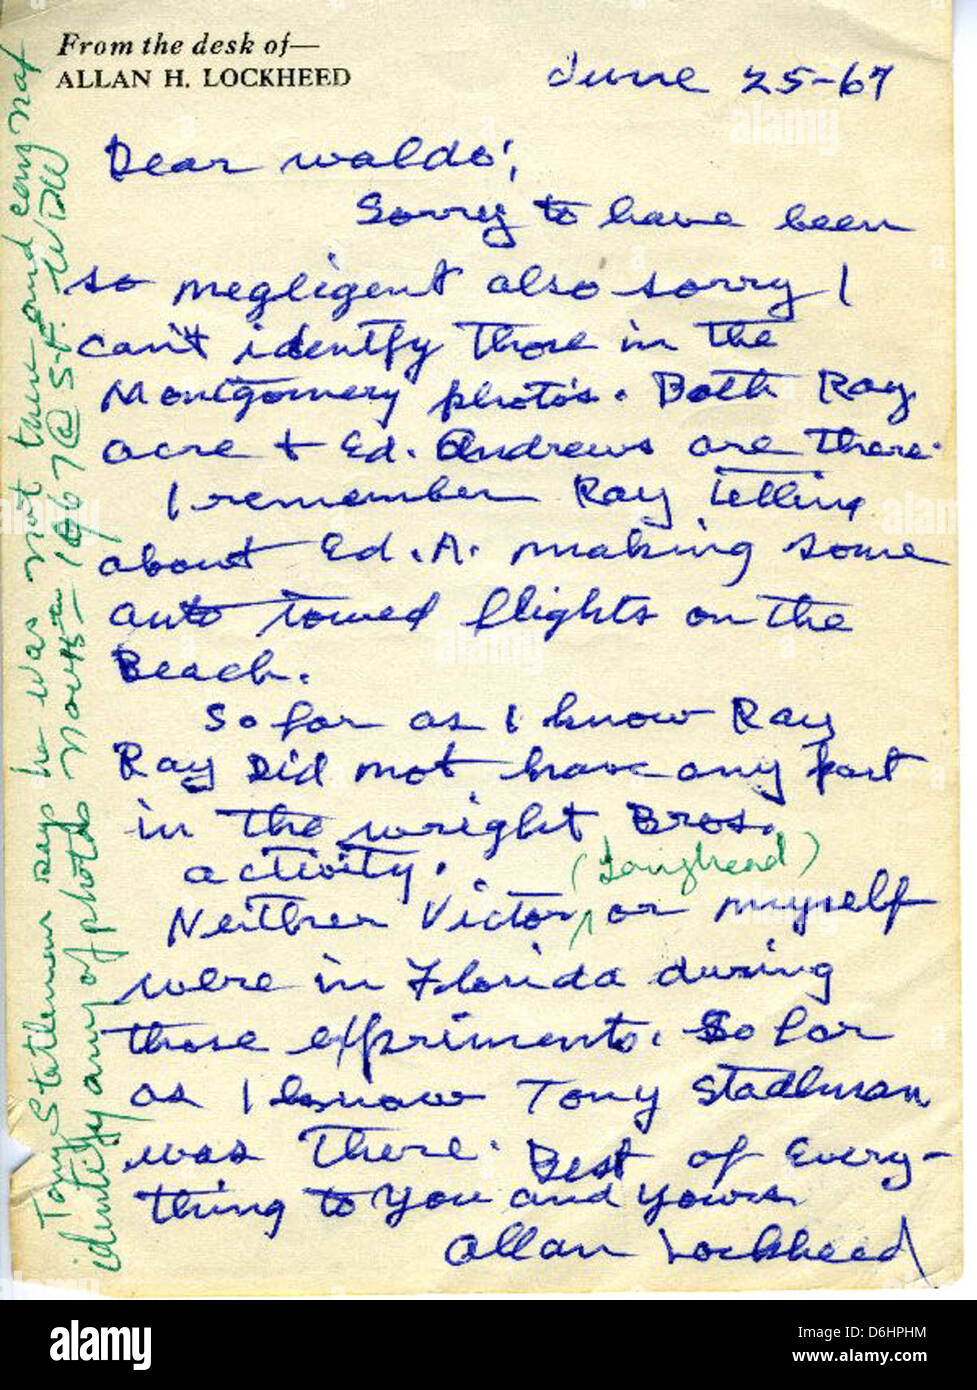 From the desk of—
ALLAN H. LOCKHEED
June 25-67
Dear Waldo;
Sorry to have been
so negligent also sorry I
can't identfy those in the
Montgomery photo's. Both Ray
acre + Ed. Andrews are there.
I remember Ray telling
about Ed. A. making some
auto towed flights on the
Beach.
So far as I know Ray
Ray Did not have any part
in the wright Bros.
activity.
(Loughead)
Neither Victor, or myself
were in Florida during
those expriments. So far
as I know Tony Stadlman
was there. Best of Every-
thing to you and yours.
Allan Lockheed
Tony Statleman says he was not there and can not
identify any of photos Nov 15th 1967 @ S.F. WDW
alamy
Image ID: D6HPHM
www.alamy.com